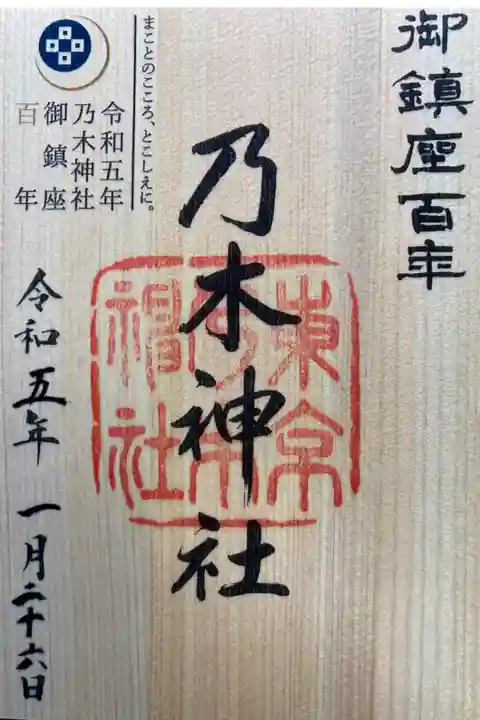 御鎮座百年
乃木神社
東京
乃木
神社
まことのこころ、とこしえに。
令和五年
乃木神社
御鎮座
百年
令和五年 一月二十六日